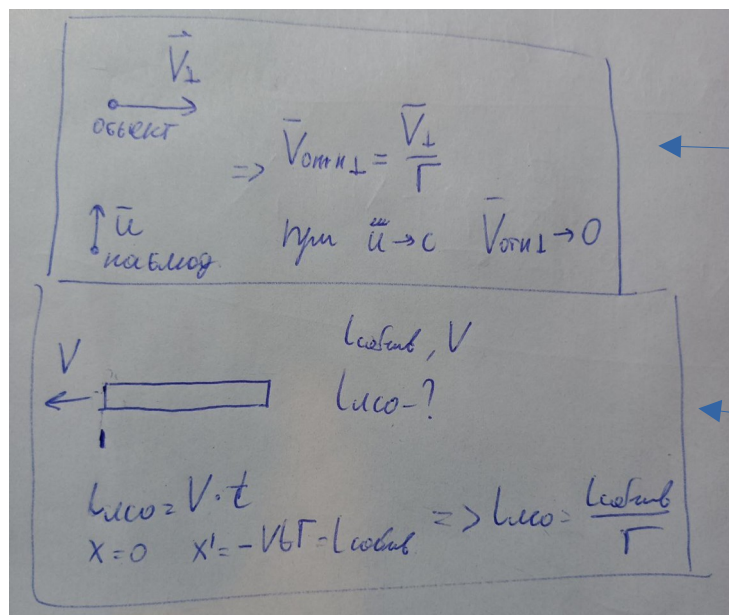 V⊥
объект
=> V̅отн⊥ = V̅⊥ / Г
u̅
наблюд.
при u̅→c V̅отн⊥→0
Lсобств, V
V
Lлсо-?
Lлсо = V·t
x=0 x'=-VtГ=Lсобств => Lлсо = Lсобств / Г